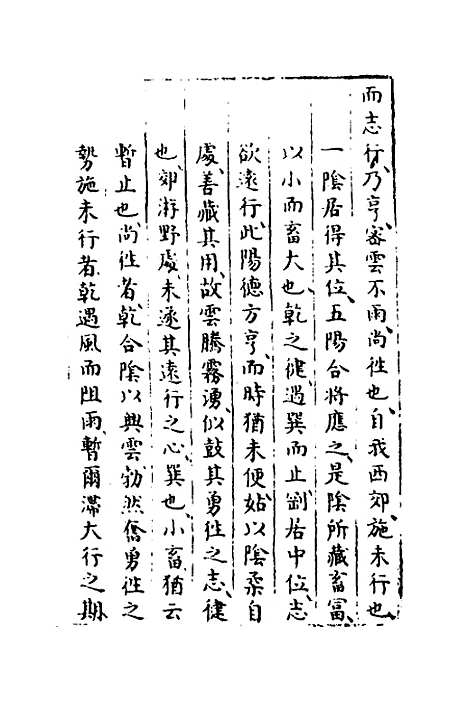 而志行、乃亨、審雲不雨、尚往也、自我西郊、施未行也、
一陰居得其位、五陽合將應之、是陰所藏畜富、
以小而畜大也、乾之健、遇巽而止、剛居中位、志
欲遠行、此陽德方亨、而時猶未便、姑以陰柔自
處、善藏其用、故雲騰霧湧、似鼓其勇往之志、健
也、郊游野處、未遂其遠行之心、巽也、小畜、猶云
暫止也、尚往者、乾合陰以興雲、勃然奮勇往之
勢、施未行者、乾遇風而阻雨、暫爾滯大行之期、